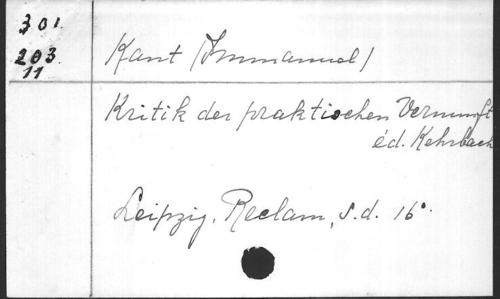 301
203
11
Kant (Immanuel)
Kritik der praktischen Vernunft
éd. Kehrbach
Leipzig, Reclam, s.d. 16°.